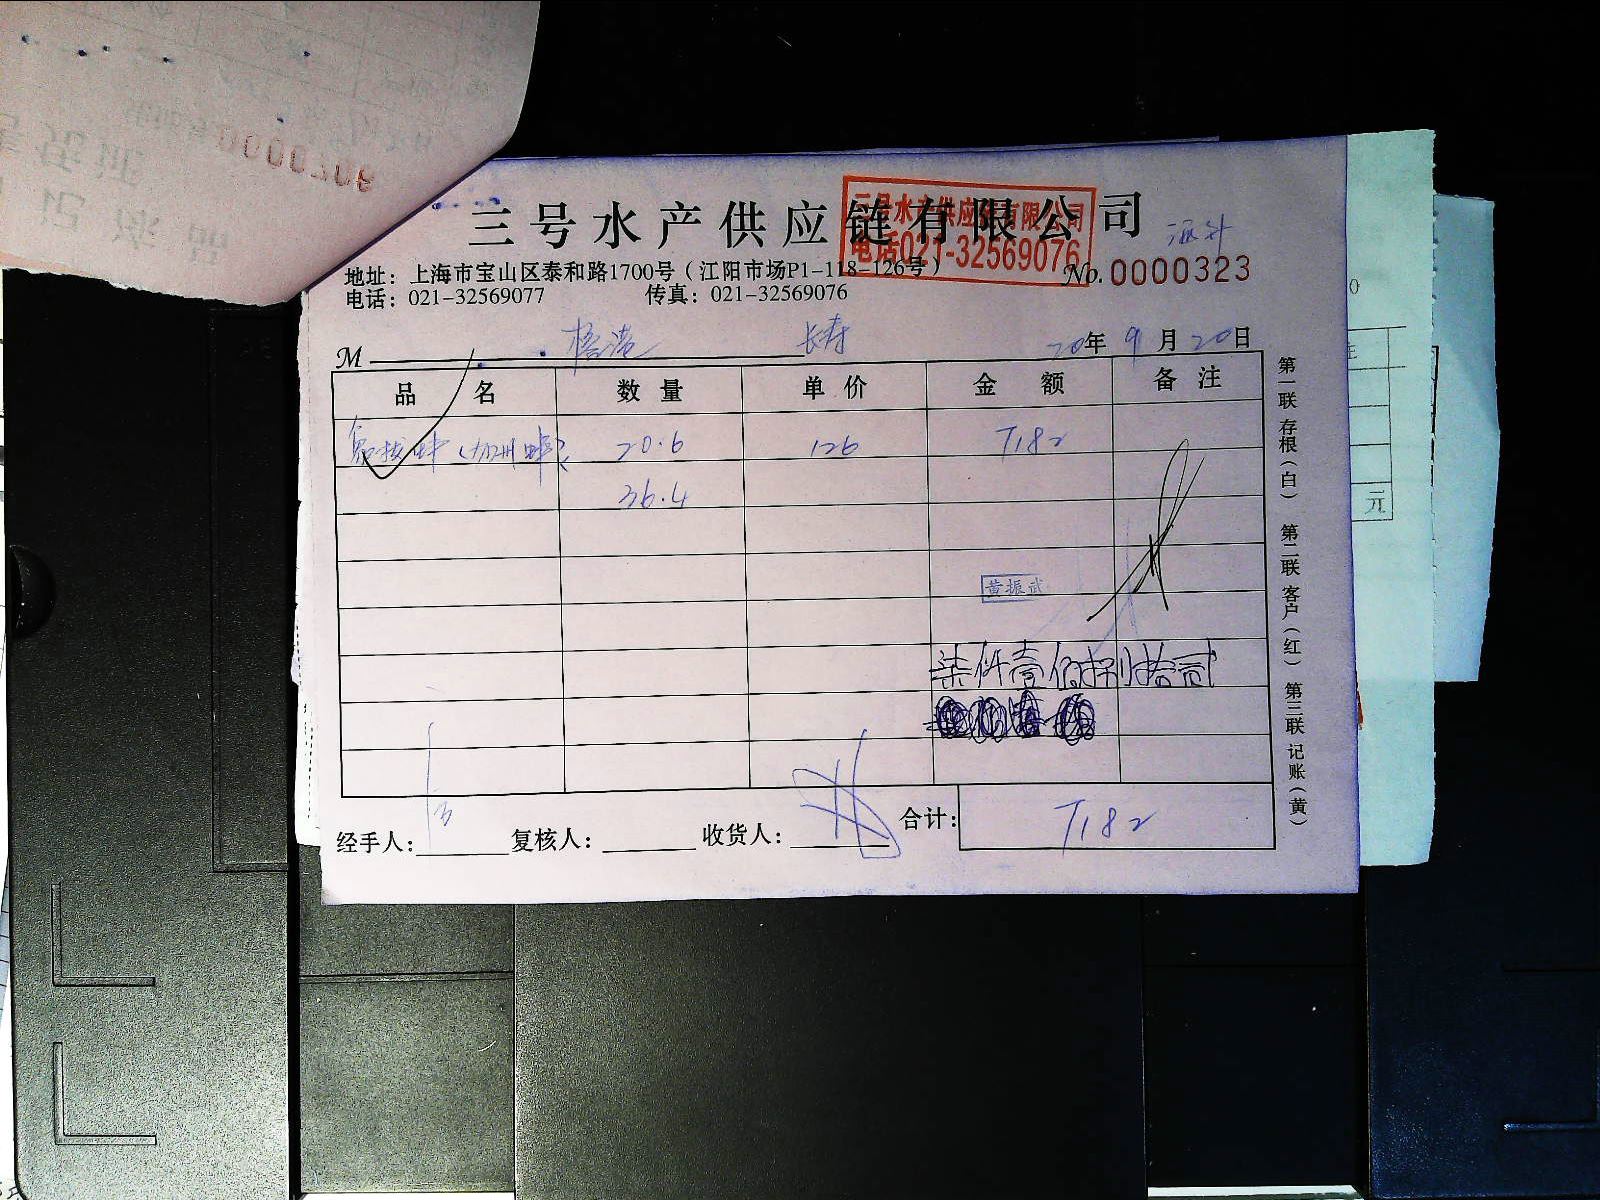 0000706
三号水产供应链有限公司
三号水产供应链有限公司
电话021-32569076
地址：上海市宝山区泰和路1700号（江阳市场P1-118-126号）
No.0000323
电话：021-32569077 传真：021-32569076
M 长寿 20年9月20日
品名 数量 单价 金额 备注
象拔蚌（加州蚌） 20.6 126 7182
36.4
黄振武
柒仟壹佰捌拾贰
经手人： 复核人： 收货人： 合计： 7182
第一联 存根（白） 第二联 客户（红） 第三联 记账（黄）
元